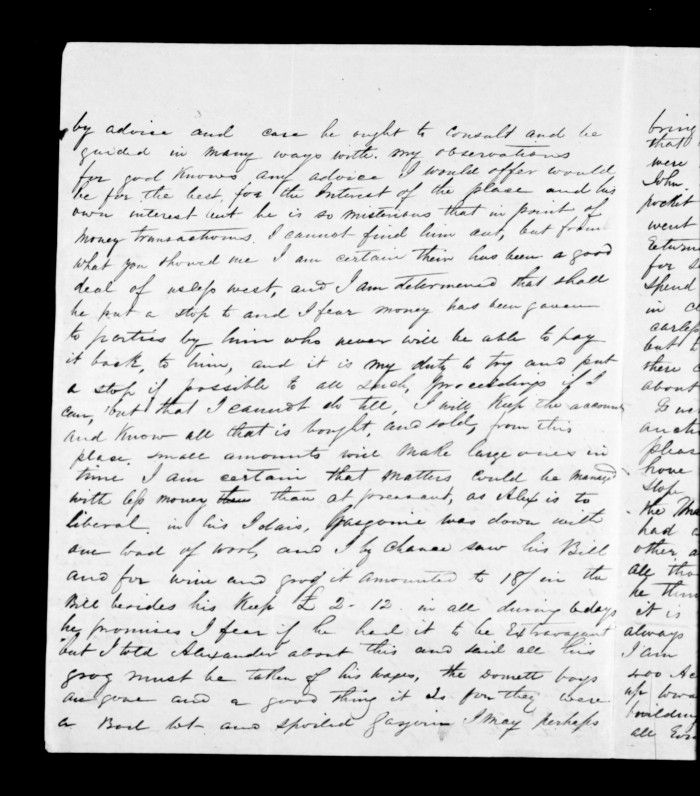 by advice and care he ought to consult and be
guided in many ways with my observations
for god knows any advice I would offer would
be for the best for the Interest of the place and his
own interest but he is so misterious that in point of
money transactions. I cannot find him out, but from
what you showed me I am certain their has been a good
deal of usless west, and I am determened that shall
be put a stop to and I fear money has been gaven
to parties by him who never will be able to pay
it back, to him, and it is my duty to try and put
a stop if possible to all such, proceedings if I
can, but that I cannot do till, I will keep the accounts
and know all that is bought, and sold, from this
place. small amounts will make large ones in
time I am certain that matters could be managed
with less money than at preasant, as Alex is to
liberal in his Idais, Gasgoine was down with
one load of wool, and I by chance saw his Bill
and for wine and grog it amounted to 18/ in the
Bill besides his keep £ 2-12 in all during 6 days
he promises I fear if he had it to be Extravagant
but I told Alexander about this and said all this
grog must be taken of his wages, the Domett boys
are gone and a good thing it is for they were
a Bad lot and spoiled Gasgoin I may perhaps
bring
that
were
John
pocket
went
Return
for
spend
in
carless
but
there
about
auct
pleas
have
stop
the Ma
had
other
all tho
he thin
it is
always
I am
500 Ac
up
building
all